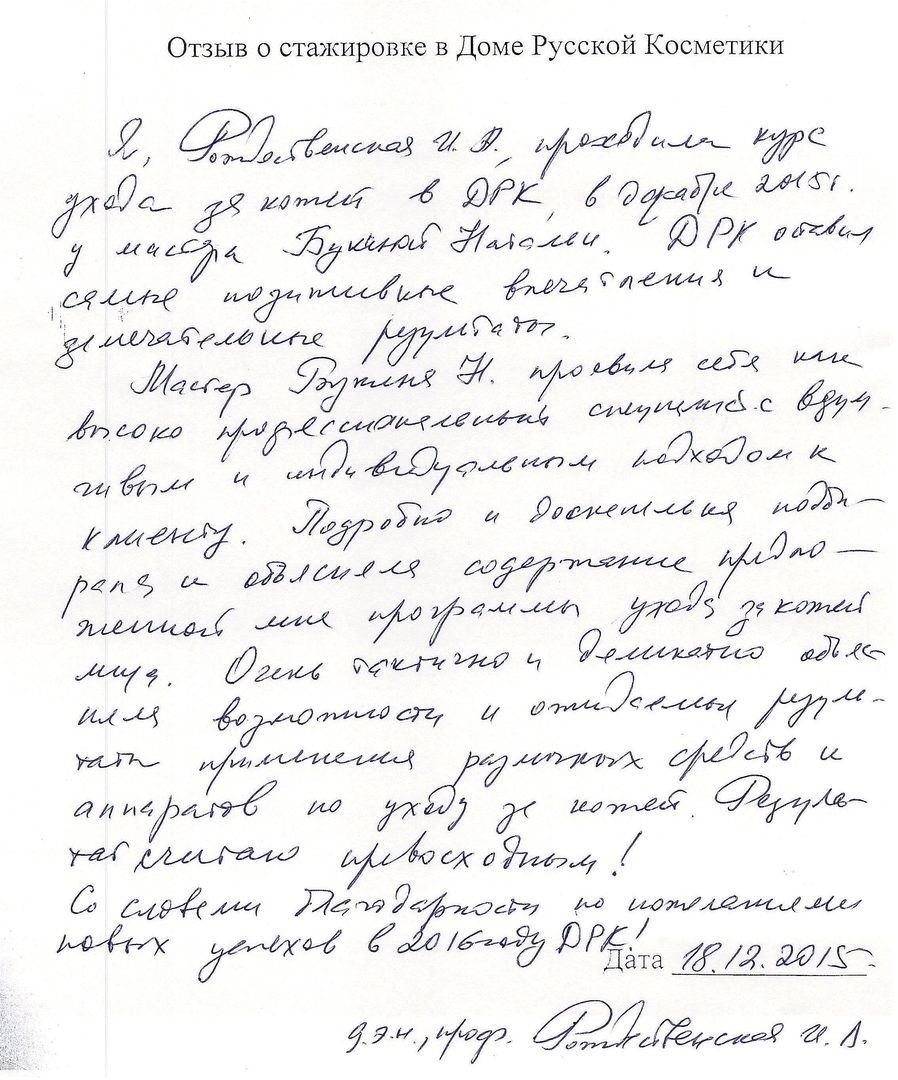 Отзыв о стажировке в Доме Русской Косметики
Я, Рождественская И. А., проходила курс
ухода за кожей в ДРК, в декабре 2015г.
у мастера Натальи. ДРК оставил
самые позитивные впечатления и
замечательные результаты.
Мастер Н. проявила себя как
высоко профессиональный с вдум-
чивым и индивидуальным подходом к
клиенту. Подробно и досконально подби-
рала и объясняла содержание предло-
женной мне программы ухода за кожей
лица. Очень тактично и деликатно объяс-
няла возможности и ожидаемые резуль-
таты применения различных средств и
аппаратов по уходу за кожей. Резуль-
тат считаю превосходным!
Со словами благодарности и пожеланиями
новых успехов в 2016 году ДРК!
Дата 18.12.2015.
д.э.н., проф. Рождественская И. А.